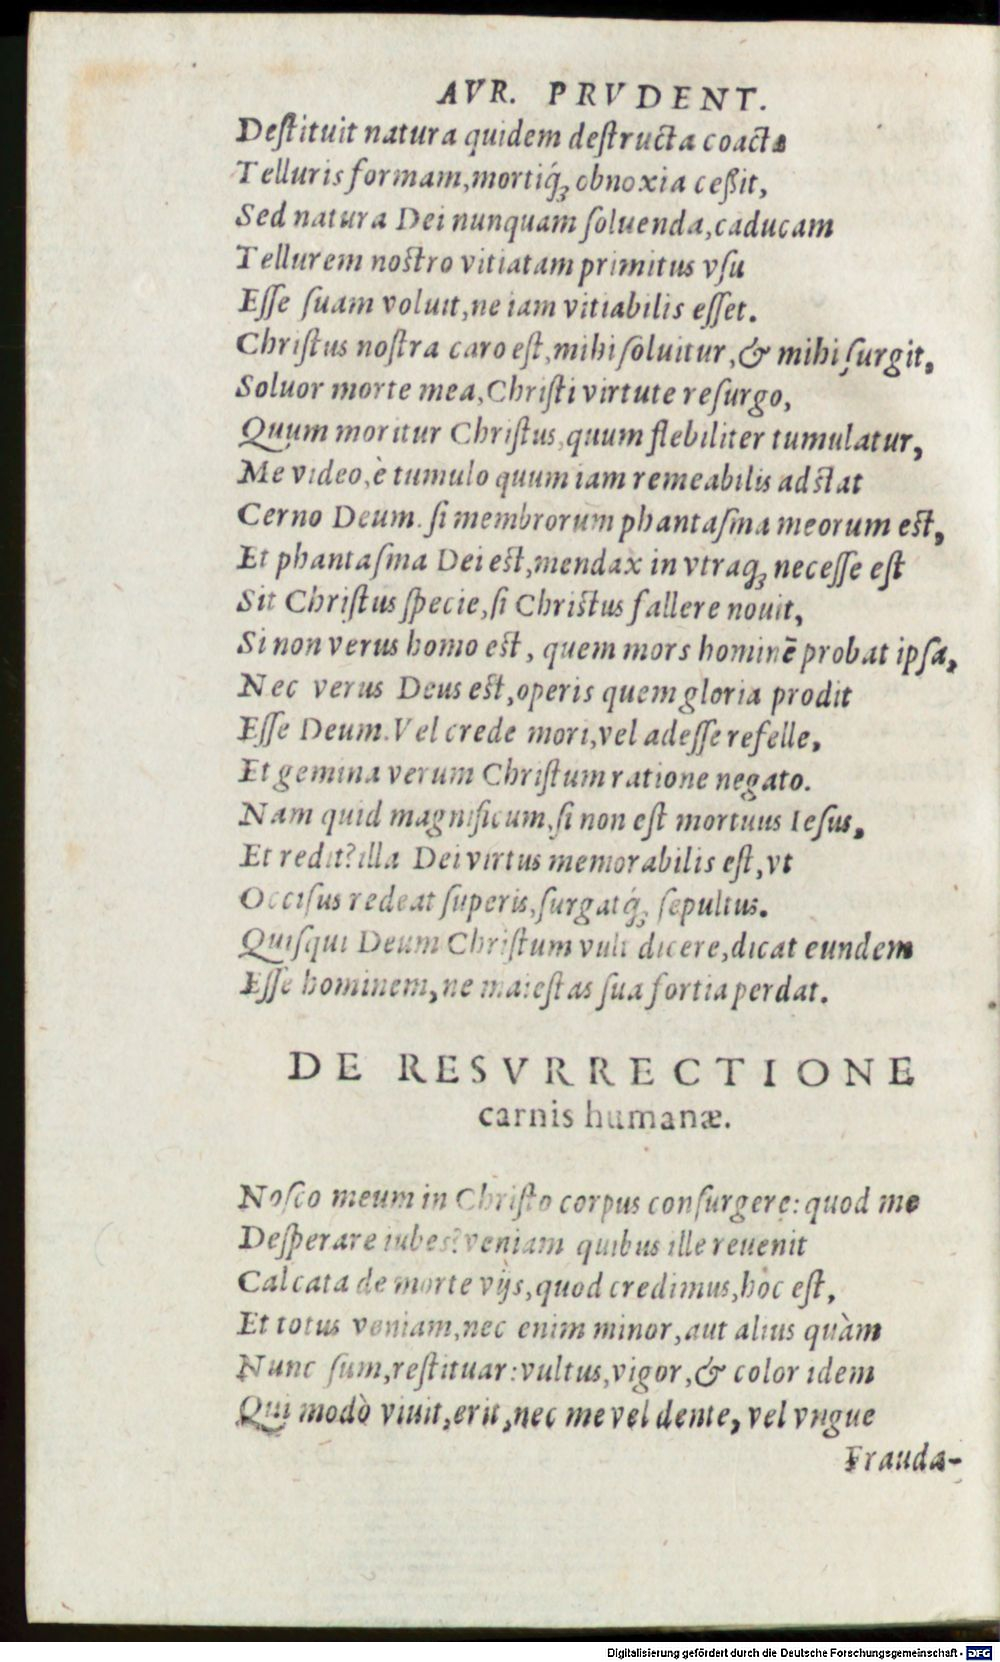 AVR. PRVDENT.
Deſtituit natura quidem deſtructa coacta
Telluris formam,mortiq́; obnoxia ceßit,
Sed natura Dei nunquam ſoluenda,caducam
Tellurem noſtro vitiatam primitus vſu
Eſſe ſuam voluit,ne iam vitiabilis eſſet.
Chriſtus noſtra caro eſt,mihi ſoluitur,& mihi ſurgit,
Soluor morte mea,Chriſti virtute reſurgo,
Quum moritur Chriſtus,quum flebiliter tumulatur,
Me video,è tumulo quum iam remeabilis adſtat
Cerno Deum. ſi membrorum phantaſma meorum eſt,
Et phantaſma Dei eſt,mendax in vtraq; neceſſe eſt
Sit Chriſtus ſpecie,ſi Chriſtus fallere nouit,
Si non verus homo eſt, quem mors hominē probat ipſa,
Nec verus Deus eſt,operis quem gloria prodit
Eſſe Deum.Vel crede mori,vel adeſſe refelle,
Et gemina verum Chriſtum ratione negato.
Nam quid magnificum,ſi non eſt mortuus Ieſus,
Et redit?illa Dei virtus memorabilis eſt,vt
Occiſus redeat ſuperis,ſurgatq́; ſepultus.
Quiſqui Deum Chriſtum vult dicere,dicat eundem
Eſſe hominem,ne maieſtas ſua fortia perdat.
DE RESVRRECTIONE
carnis humanæ.
Noſco meum in Chriſto corpus conſurgere: quod me
Deſperare iubes?veniam quibus ille reuenit
Calcata de morte vijs,quod credimus,hoc eſt,
Et totus veniam,nec enim minor,aut alius quàm
Nunc ſum,reſtituar:vultus,vigor,& color idem
Qui modò viuit,erit,nec me vel dente, vel vngue
Frauda-
Digitalisierung gefördert durch die Deutsche Forschungsgemeinschaft - DFG